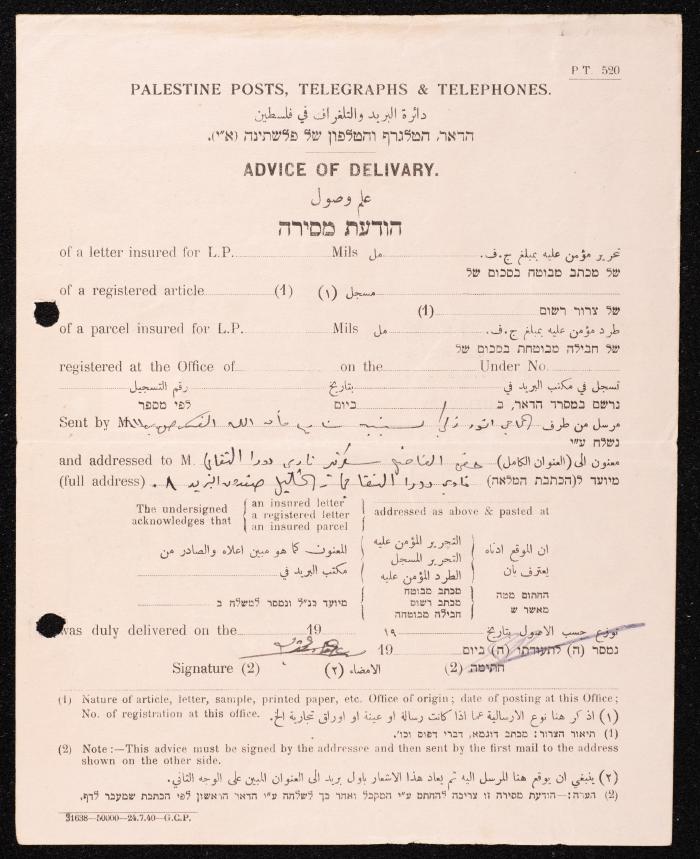 P T. 520
PALESTINE POSTS, TELEGRAPHS & TELEPHONES.
دائرة البريد والتلغراف في فلسطين
הדאר, הטלגרף והטלפון של פלשתינה (א״י).
ADVICE OF DELIVARY.
علم وصول
הודעת מסירה
of a letter insured for L.P. Mils مل تحرير مؤمن عليه بمبلغ ج.ف.
של מכתב מבוטח בסכום של
of a registered article (1) (١) مسجل
(1) של צרור רשום
of a parcel insured for L.P. Mils مل طرد مؤمن عليه بمبلغ ج.ف.
של חבילה מבוטחת בסכום של
registered at the Office of on the Under No.
تسجل في مكتب البريد في بتاريخ رقم التسجيل
נרשם במסרד הדאר, ב ביום לפי מספר
Sent by M مرسل من طرف
נשלח ע״י
and addressed to M. معنون الى (العنوان الكامل)
(full address) نادي دورا מיועד ל(הכתבת המלאה)
The undersigned acknowledges that
an insured letter
a registered letter
an insured parcel
addressed as above & pasted at
ان الموقع ادناه يعترف بأن
التحرير المؤمن عليه
التحرير المسجل
الطرد المؤمن عليه
المعنون كما هو مبين اعلاه والصادر من مكتب البريد في
החתום מטה מאשר ש
מכתב מבוטח
מכתב רשום
חבילה מבוטחה
מיועד כנ״ל ונמסר למשלח ב
was duly delivered on the 19 ١٩ توزع حسب الاصول بتاريخ
19 נמסר (ה) לתעודתו (ה) ביום
Signature (2) الامضاء (٢) (2) חתימה
(1) Nature of article, letter, sample, printed paper, etc. Office of origin; date of posting at this Office;
No. of registration at this office. (١) اذكر هنا نوع الارسالية عما اذا كانت رسالة او عينة او اوراق تجارية الخ.
(1) תיאור הצרור: מכתב דוגמא, דברי דפוס וכו׳.
(2) Note :—This advice must be signed by the addressee and then sent by the first mail to the address
shown on the other side.
(٢) ينبغي ان يوقع هنا المرسل اليه ثم يعاد هذا الاشعار باول بريد الى العنوان المبين على الوجه الثاني.
(2) הערה:—הודעת מסירה זו צריכה להחתם ע״י המקבל ואחר כך לשלחה ע״ו הדאר הראשון לפי הכתבת שמעבר לדף.
31638—50000—24.7.40—G.C.P.